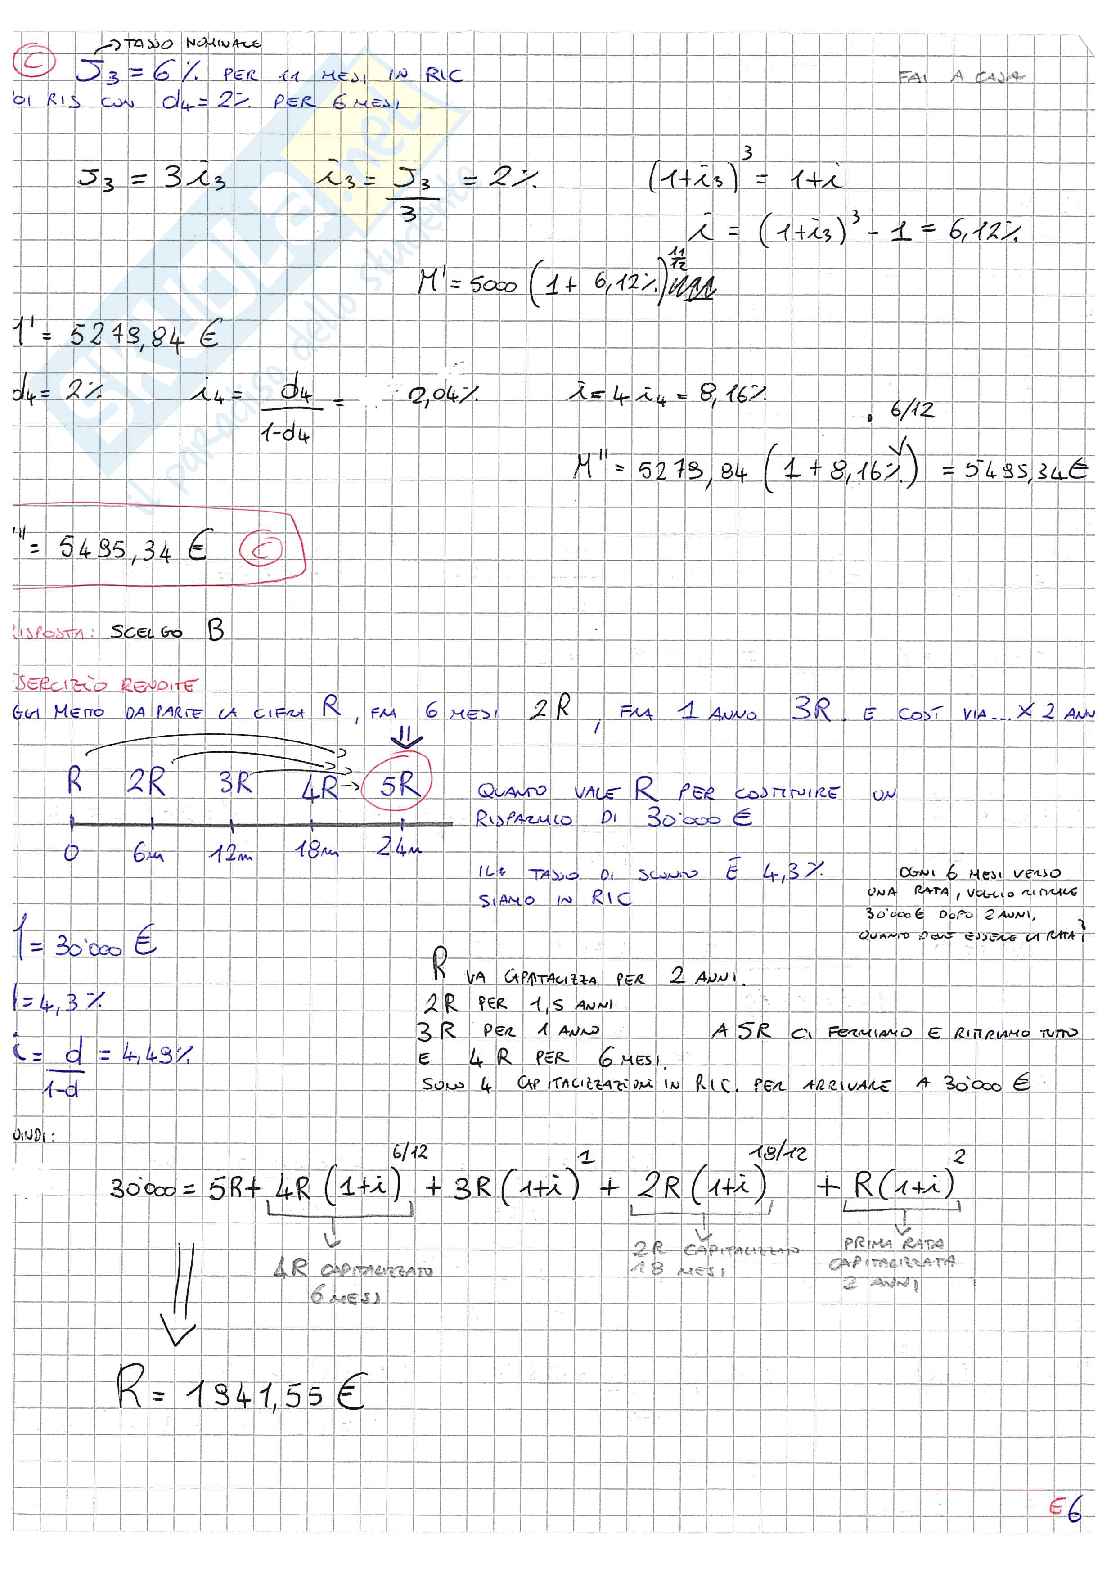 → TASSO NOMINALE
C J3 = 6% PER 11 MESI IN RIC
FAI A CASA
DI RIS CON d4 = 2% PER 6 MESI
J3 = 3i3 i3 = J3/3 = 2% (1+i3)^3 = 1+i
i = (1+i3)^3 - 1 = 6,12%
M' = 5000 (1 + 6,12%)^11/12
1' = 5279,84 €
d4 = 2% i4 = d4/(1-d4) = 2,04% i = 4 i4 = 8,16%
6/12
M'' = 5279,84 (1 + 8,16%) = 5495,34 €
'' = 5495,34 € C
ISPOSTA: SCELGO B
SERCIZIO RENDITE
METTO DA PARTE LA CIFRA R, FRA 6 MESI 2R, FRA 1 ANNO 3R E COSÌ VIA... X 2 ANN
R 2R 3R 4R → 5R
0 6m 12m 18m 24m
QUANTO VALE R PER COSTITUIRE UN
RISPARMIO DI 30'000 €
IL TASSO DI SCONTO È 4,3%
SIAMO IN RIC
OGNI 6 MESI VERSO
UNA RATA, VOGLIO RITIRARE
30'000 € DOPO 2 ANNI,
QUANTO DEVE ESSERE LA RATA?
= 30'000 €
= 4,3%
i = d/(1-d) = 4,49%
R VA CAPITALIZZA PER 2 ANNI.
2R PER 1,5 ANNI
3R PER 1 ANNO
E 4R PER 6 MESI.
SONO 4 CAPITALIZZAZIONI IN RIC. PER ARRIVARE A 30'000 €
A 5R CI FERMIAMO E RITIRIAMO TUTTO
UINDI:
30'000 = 5R + 4R (1+i)^6/12 + 3R (1+i)^1 + 2R (1+i)^18/12 + R (1+i)^2
4R CAPITALIZZATO
6 MESI
2R CAPITALIZZATO
18 MESI
PRIMA RATA
CAPITALIZZATA
2 ANNI
R = 1941,55 €
E6
SKUOLA.net
il paradiso dello studente